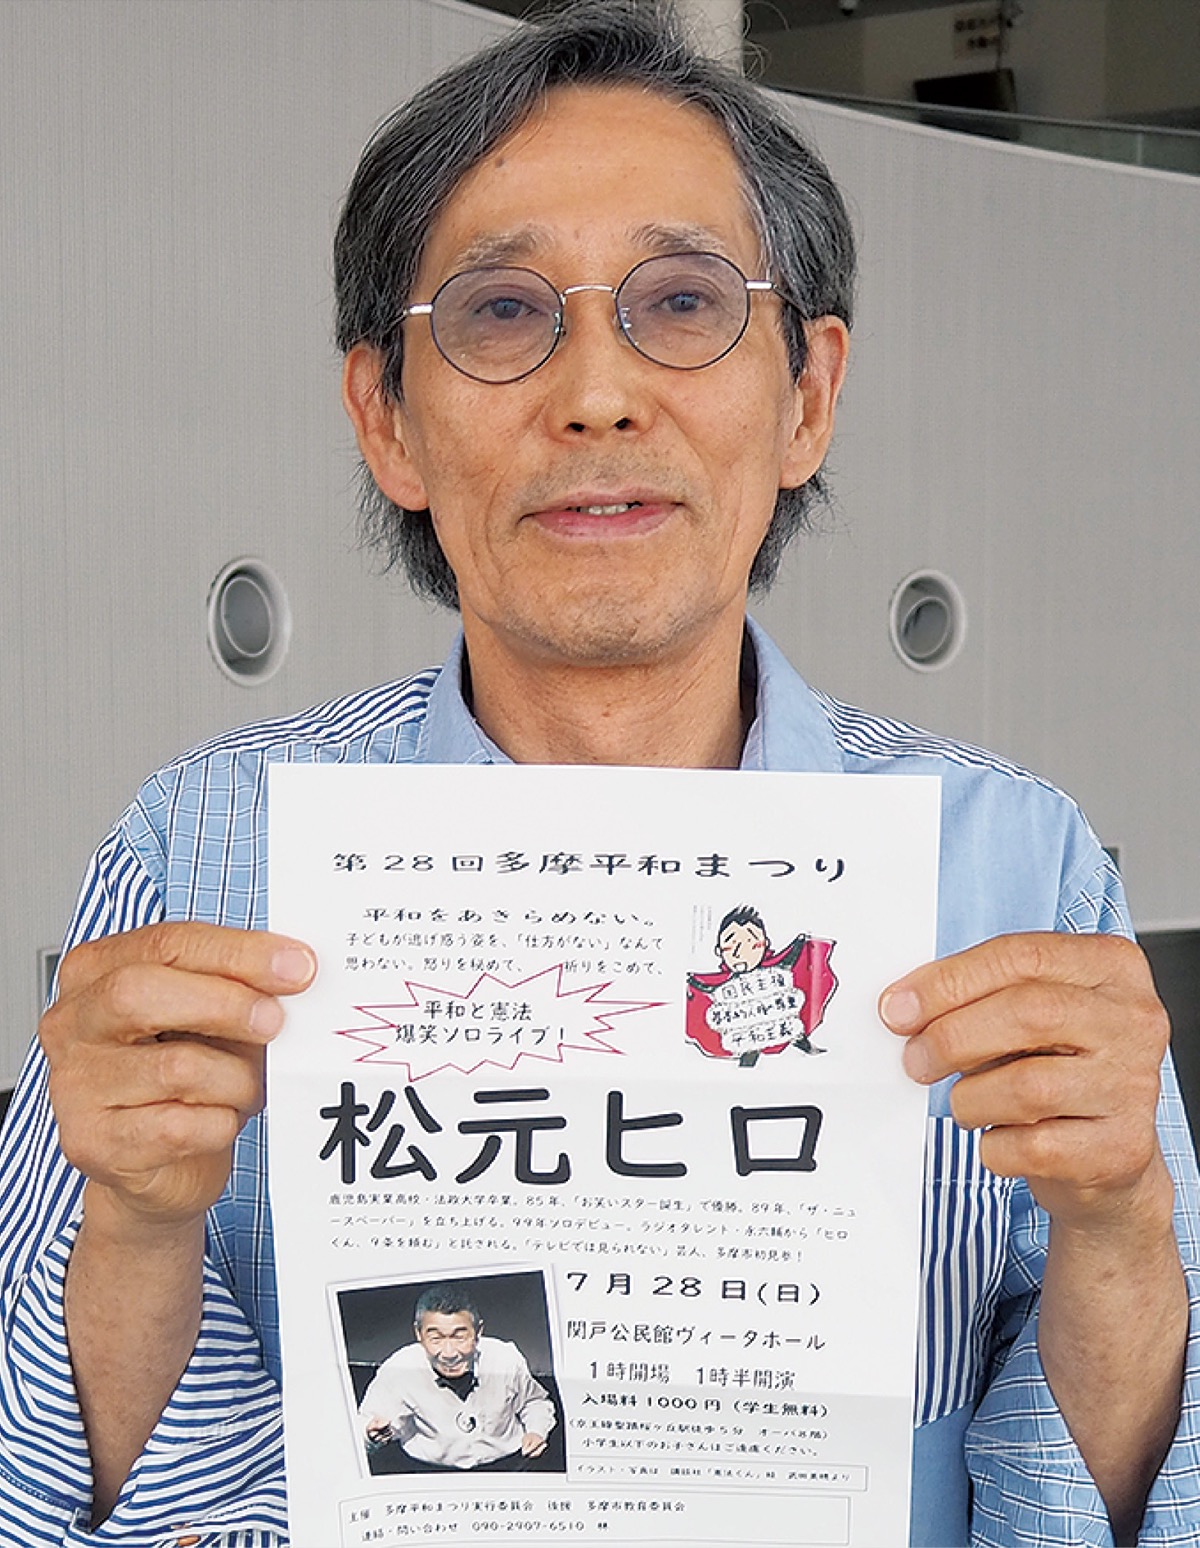 第28回多摩平和まつり
平和をあきらめない。
子どもが逃げ惑う姿を、「仕方がない」なんて
思わない。怒りを秘めて、 祈りをこめて、
平和と憲法
爆笑ソロライブ！
国民主権
基本的人権の尊重
平和主義
松元ヒロ
鹿児島実業高校・法政大学卒業。85年、「お笑いスター誕生」で優勝。89年、「ザ・ニュ
ースペーパー」を立ち上げる。99年ソロデビュー。ラジオタレント・永六輔から「ヒロ
くん、9条を頼む」と託される。「テレビでは見られない」芸人、多摩市初見参！
7月28日(日)
関戸公民館ヴィータホール
1時開場 1時半開演
入場料1000円（学生無料）
（京王線聖蹟桜ヶ丘駅徒歩5分 オーパ8階）
小学生以下のお子さんはご遠慮ください。
イラスト・写真は 講談社「憲法くん」絵 武田美穂より
主催 多摩平和まつり実行委員会 後援 多摩市教育委員会
連絡・問い合わせ 090-2907-6510 林